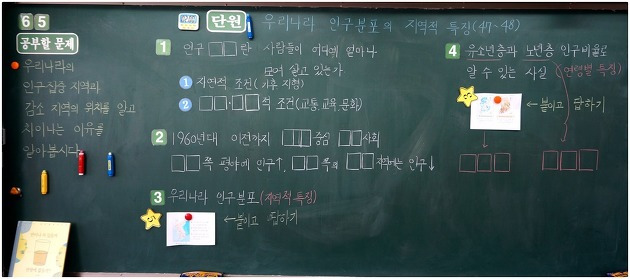 65
단원 우리나라 인구분포의 지역적 특징(47~48)
공부할 문제
우리나라의
인구 집중 지역과
감소 지역의 위치를 알고
차이나는 이유를
알아봅시다.
1 인구 □□란 사람들이 어디에 얼마나
모여 살고 있는가
1 자연적 조건(기후, 지형)
2 □□·□□적 조건(교통, 교육, 문화)
2 1960년대 이전까지 □□ 중심 □□사회
□□쪽 평야에 인구↑, □□쪽의 □□지역에는 인구↓
3 우리나라 인구분포(지역적 특징)
←붙이고 답하기
4 유소년층과 노년층 인구비율로
알 수 있는 사실 (연령별 특징)
←붙이고 답하기
□□□ □□□